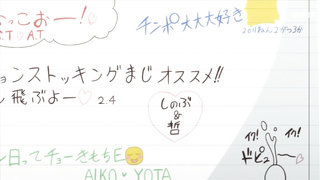 なっこおー!
チンポ大大大好き
.T☆A.T
2011ねん2がつ3か
ョンストッキングまじオススメ!!
ン飛ぶよー♡ 2.4
しのぶ
&
哲
イク! イク!
ドピュ
ン日ってチョーきもちE
AIKO♥YOTA